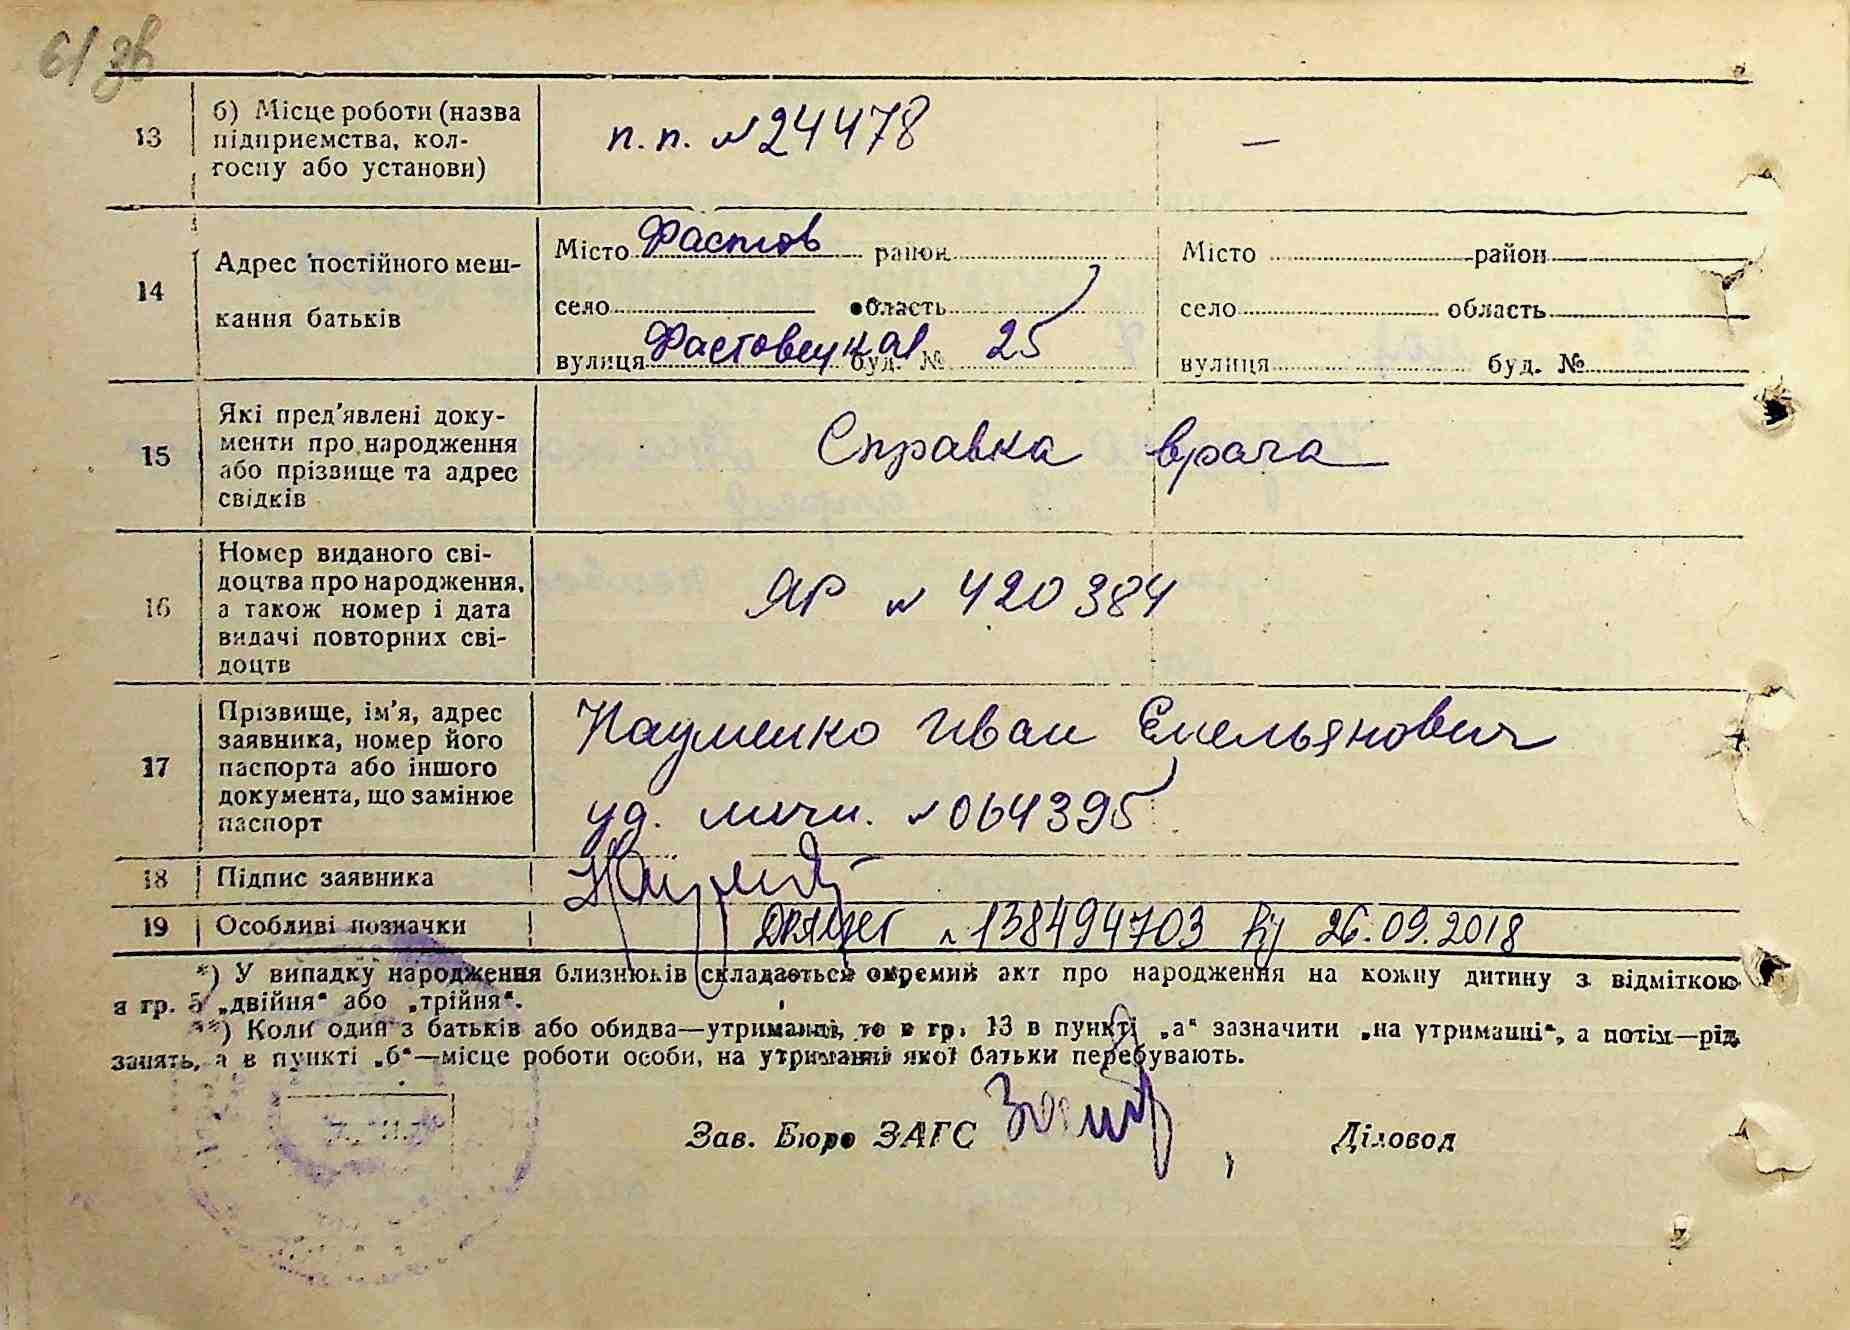 61 зв
13
б) Місце роботи (назва
підприємства, кол-
госпу або установи)
п.п. № 24478
—
14
Адрес постійного меш-
кання батьків
Місто Фастов район
село область
вулиця Фастовецкая буд. № 25
Місто район
село область
вулиця буд. №
15
Які пред'явлені доку-
менти про народження
або прізвище та адрес
свідків
Справка врача
16
Номер виданого сві-
доцтва про народження,
а також номер і дата
видачі повторних сві-
доцтв
ЯР № 420384
17
Прізвище, ім'я, адрес
заявника, номер його
паспорта або іншого
документа, що замінює
паспорт
Науменко Иван Емельянович
уд. личн. № 064395
18
Підпис заявника
19
Особливі позначки
ДРАЦСГ № 138494703 26.09.2018
*) У випадку народження близнюків складається окремий акт про народження на кожну дитину з відміткою
в гр. 5 „двійня“ або „трійня“.
**) Коли один з батьків або обидва—утриманці, то в гр. 13 в пункті „а“ зазначити „на утриманні“, а потім—рід
занять, а в пункті „б“—місце роботи особи, на утриманні якої батьки перебувають.
Зав. Бюро ЗАГС
Діловод